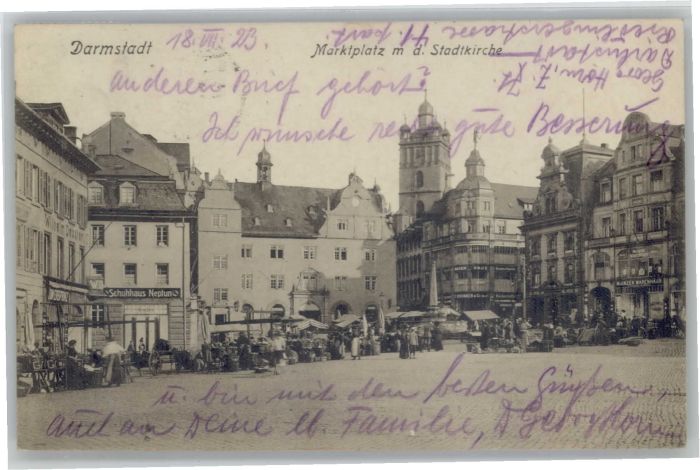 Darmstadt
18. VII. 23.
Marktplatz m d. Stadtkirche
Georg Horn, z. Zt.
Darmstadt
anderen Brief gehört?
Ich wünsche recht gute Besserung
SCHUHHAUS NEPTUN
u. bin mit den besten Grüßen,
auch an Deine lb. Familie, D Georg Horn